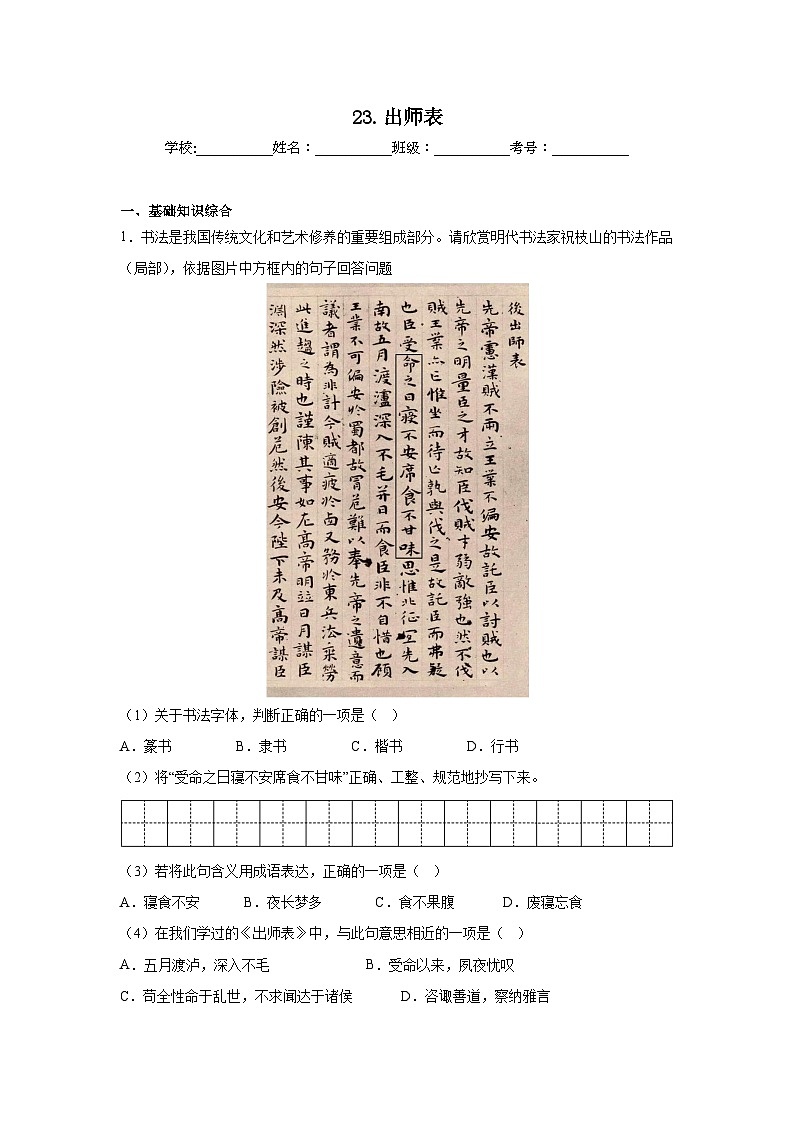 23. 出师表
学校:___________姓名：___________班级：___________考号：___________
一、基础知识综合
1．书法是我国传统文化和艺术修养的重要组成部分。请欣赏明代书法家祝枝山的书法作品
（局部），依据图片中方框内的句子回答问题
後出師表
先帝慮漢賊不兩立王業不偏安故託臣以討賊也以
先帝之明量臣之才故知臣伐賊才弱敵強也然不伐
賊王業亦亡惟坐而待亡孰與伐之是故託臣而弗疑
也臣受命之日寢不安席食不甘味思惟北征宜先入
南故五月渡瀘深入不毛并日而食臣非不自惜也顧
王業不可偏安於蜀都故冒危難以奉先帝之遺意而
議者謂為非計今賊適疲於西又務於東兵法乘勞
此進趨之時也謹陳其事如左高帝明並日月謀臣
淵深然涉險被創危然後安今陛下未及高帝謀臣
（1）关于书法字体，判断正确的一项是（　）
A．篆书　B．隶书　C．楷书　D．行书
（2）将“受命之日寝不安席食不甘味”正确、工整、规范地抄写下来。
（3）若将此句含义用成语表达，正确的一项是（　）
A．寝食不安　B．夜长梦多　C．食不果腹　D．废寝忘食
（4）在我们学过的《出师表》中，与此句意思相近的一项是（　）
A．五月渡泸，深入不毛　B．受命以来，夙夜忧叹
C．苟全性命于乱世，不求闻达于诸侯　D．咨诹善道，察纳雅言